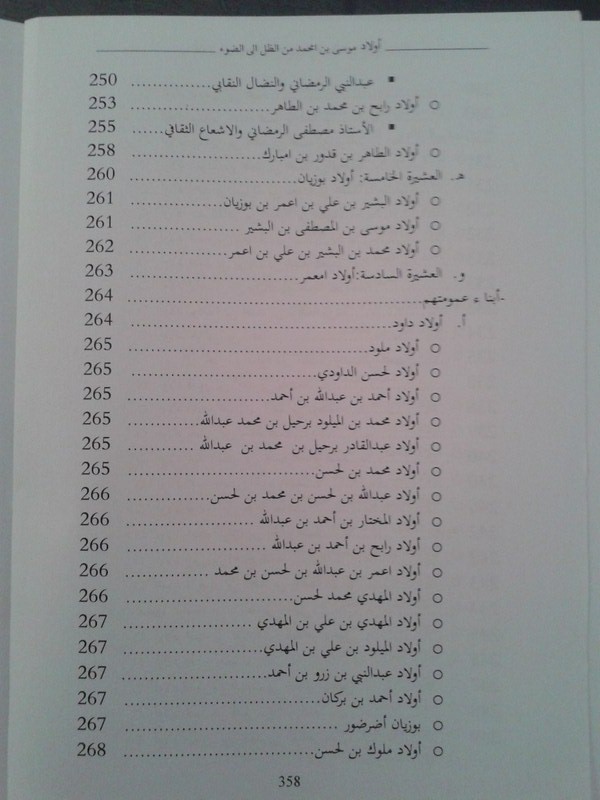 أولاد موسى بن المحمد من الظل الى الضوء
▪ عبدالنبي الرمضاني والنضال النقابي...............250
○ أولاد رابح بن محمد بن الطاهر...............253
▪ الأستاذ مصطفى الرمضاني والاشعاع الثقافي......255
○ أولاد الطاهر بن قدور بن امبارك...............258
هـ. العشيرة الخامسة: أولاد بوزيان...............260
○ أولاد البشير بن علي بن اعمر بن بوزيان...............261
○ أولاد موسى بن المصطفى بن البشير...............261
○ أولاد محمد بن البشير بن علي بن اعمر...............262
و. العشيرة السادسة:أولاد امعمر...............263
-أبناء عمومتهم...............264
أ. أولاد داود...............264
○ أولاد ملود...............265
○ أولاد لحسن الداودي...............265
○ أولاد أحمد بن عبدالله بن أحمد...............265
○ أولاد محمد بن الميلود برحيل بن محمد عبدالله...............265
○ أولاد عبدالقادر برحيل بن محمد بن عبدالله...............265
○ أولاد محمد بن لحسن...............265
○ أولاد عبدالله بن لحسن بن محمد بن لحسن...............266
○ أولاد المختار بن أحمد بن عبدالله...............266
○ أولاد رابح بن أحمد بن عبدالله...............266
○ أولاد اعمر بن عبدالله بن لحسن بن محمد...............266
○ أولاد المهدي محمد لحسن...............266
○ أولاد المهدي بن علي بن المهدي...............267
○ أولاد الميلود بن علي بن المهدي...............267
○ أولاد عبدالنبي بن زرو بن أحمد...............267
○ أولاد أحمد بن بركان...............267
○ بوزيان أضرضور...............267
○ أولاد ملوك بن لحسن...............268
358